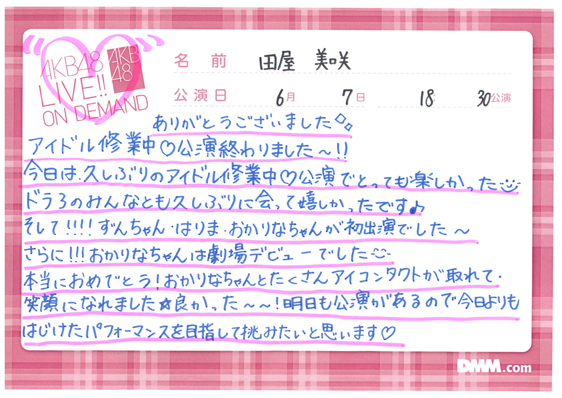 AKB48
LIVE!!
ON DEMAND
AKB
48
名前 田屋 美咲
公演日 6月 7日 18: 30公演
ありがとうございました
アイドル修業中♡公演終わりました〜!!
今日は、久しぶりのアイドル修業中♡公演でとっても楽しかった
ドラ3のみんなとも久しぶりに会って嬉しかったです♪
そして!!!!ずんちゃん・はりま・おかりなちゃんが初出演でした〜
さらに!!!おかりなちゃんは劇場デビューでした
本当におめでとう!おかりなちゃんとたくさんアイコンタクトが取れて、
笑顔になれました☆良かった〜〜!明日も公演があるので今日よりも
はじけたパフォーマンスを目指して挑みたいと思います♡
DMM.com